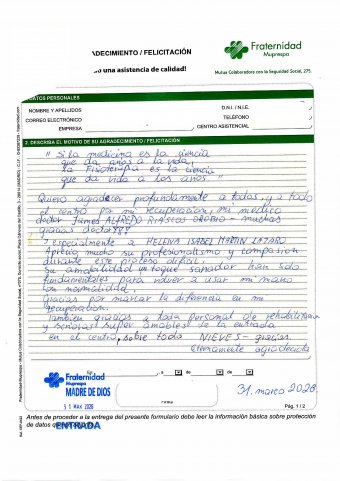 .DECIMIENTO / FELICITACIÓN
una asistencia de calidad!
Fraternidad
Muprespa
Mutua Colaboradora con la Seguridad Social, 275.
DATOS PERSONALES
NOMBRE Y APELLIDOS
D.N.I. / N.I.E.
CORREO ELECTRÓNICO
TELÉFONO
EMPRESA
CENTRO ASISTENCIAL
2. DESCRIBA EL MOTIVO DE SU AGRADECIMIENTO / FELICITACIÓN
"Si la medicina es la ciencia
que da años a la vida,
la Fisioterapia es la ciencia
que da vida a los años"
Quiero agradecer profundamente a todos, y a todo
el centro por mi recuperación, mi médico
doctor James ALFREDO RIASCOS OROBIO - muchas
gracias doctor
y especialmente a HELENA ISABEL MARTIN LAZARO
Aprecio mucho su profesionalismo y compasión
durante este proceso difícil.
Su amabilidad un toque sanador han sido
fundamentales para volver a usar mi mano
con normalidad.
Gracias por marcar la diferencia en mi
recuperación.
También gracias a toda personal de rehabilitación
y señoras super amables de la entrada
en el centro, sobre todo NIEVES - gracias.
Eternamente agradecida
Fraternidad
Muprespa
MADRE DE DIOS
31 MAR 2026
ENTRADA
31. marzo 2026.
Firma
Pág. 1 / 2
Antes de proceder a la entrega del presente formulario debe leer la información básica sobre protección
de datos